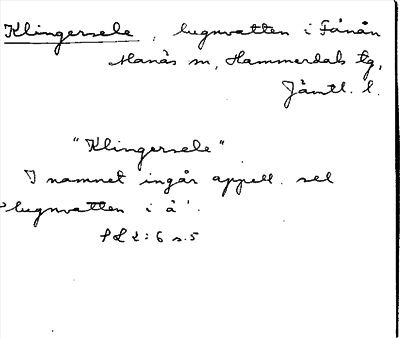 Klingersele, lugnvatten i Fånån
Manås m, Hammerdals tg,
Jämtl. l.
"Klingersele"
I namnet ingår appell. sel
'lugnvatten i å'.
SL 2:6 s.5